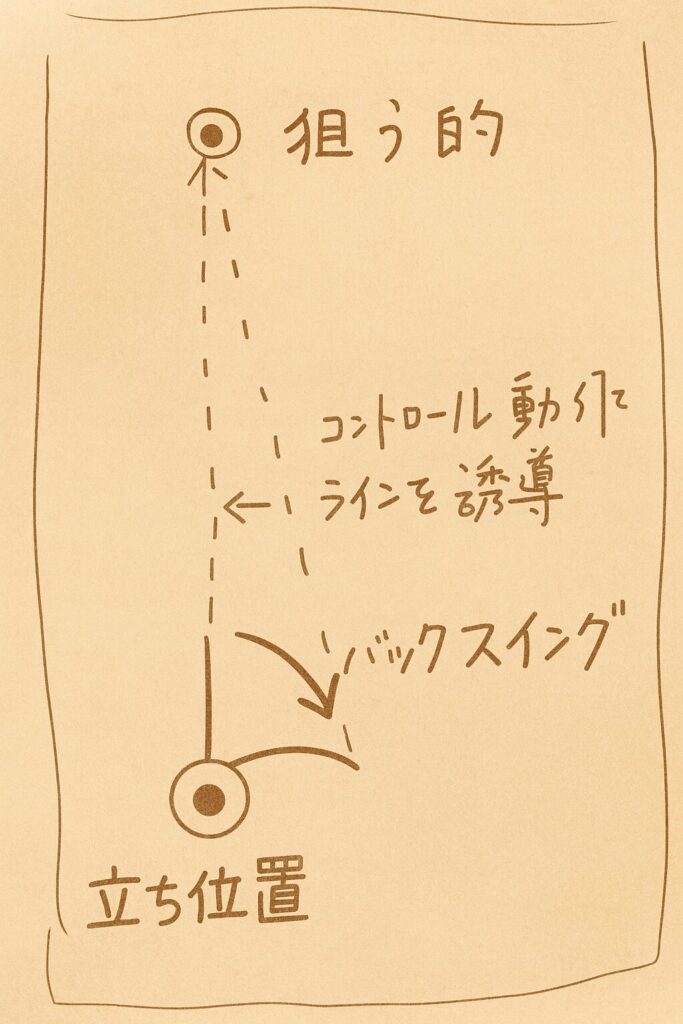 狙う的
コントロール動作で
ラインを誘導
バックスイング
立ち位置